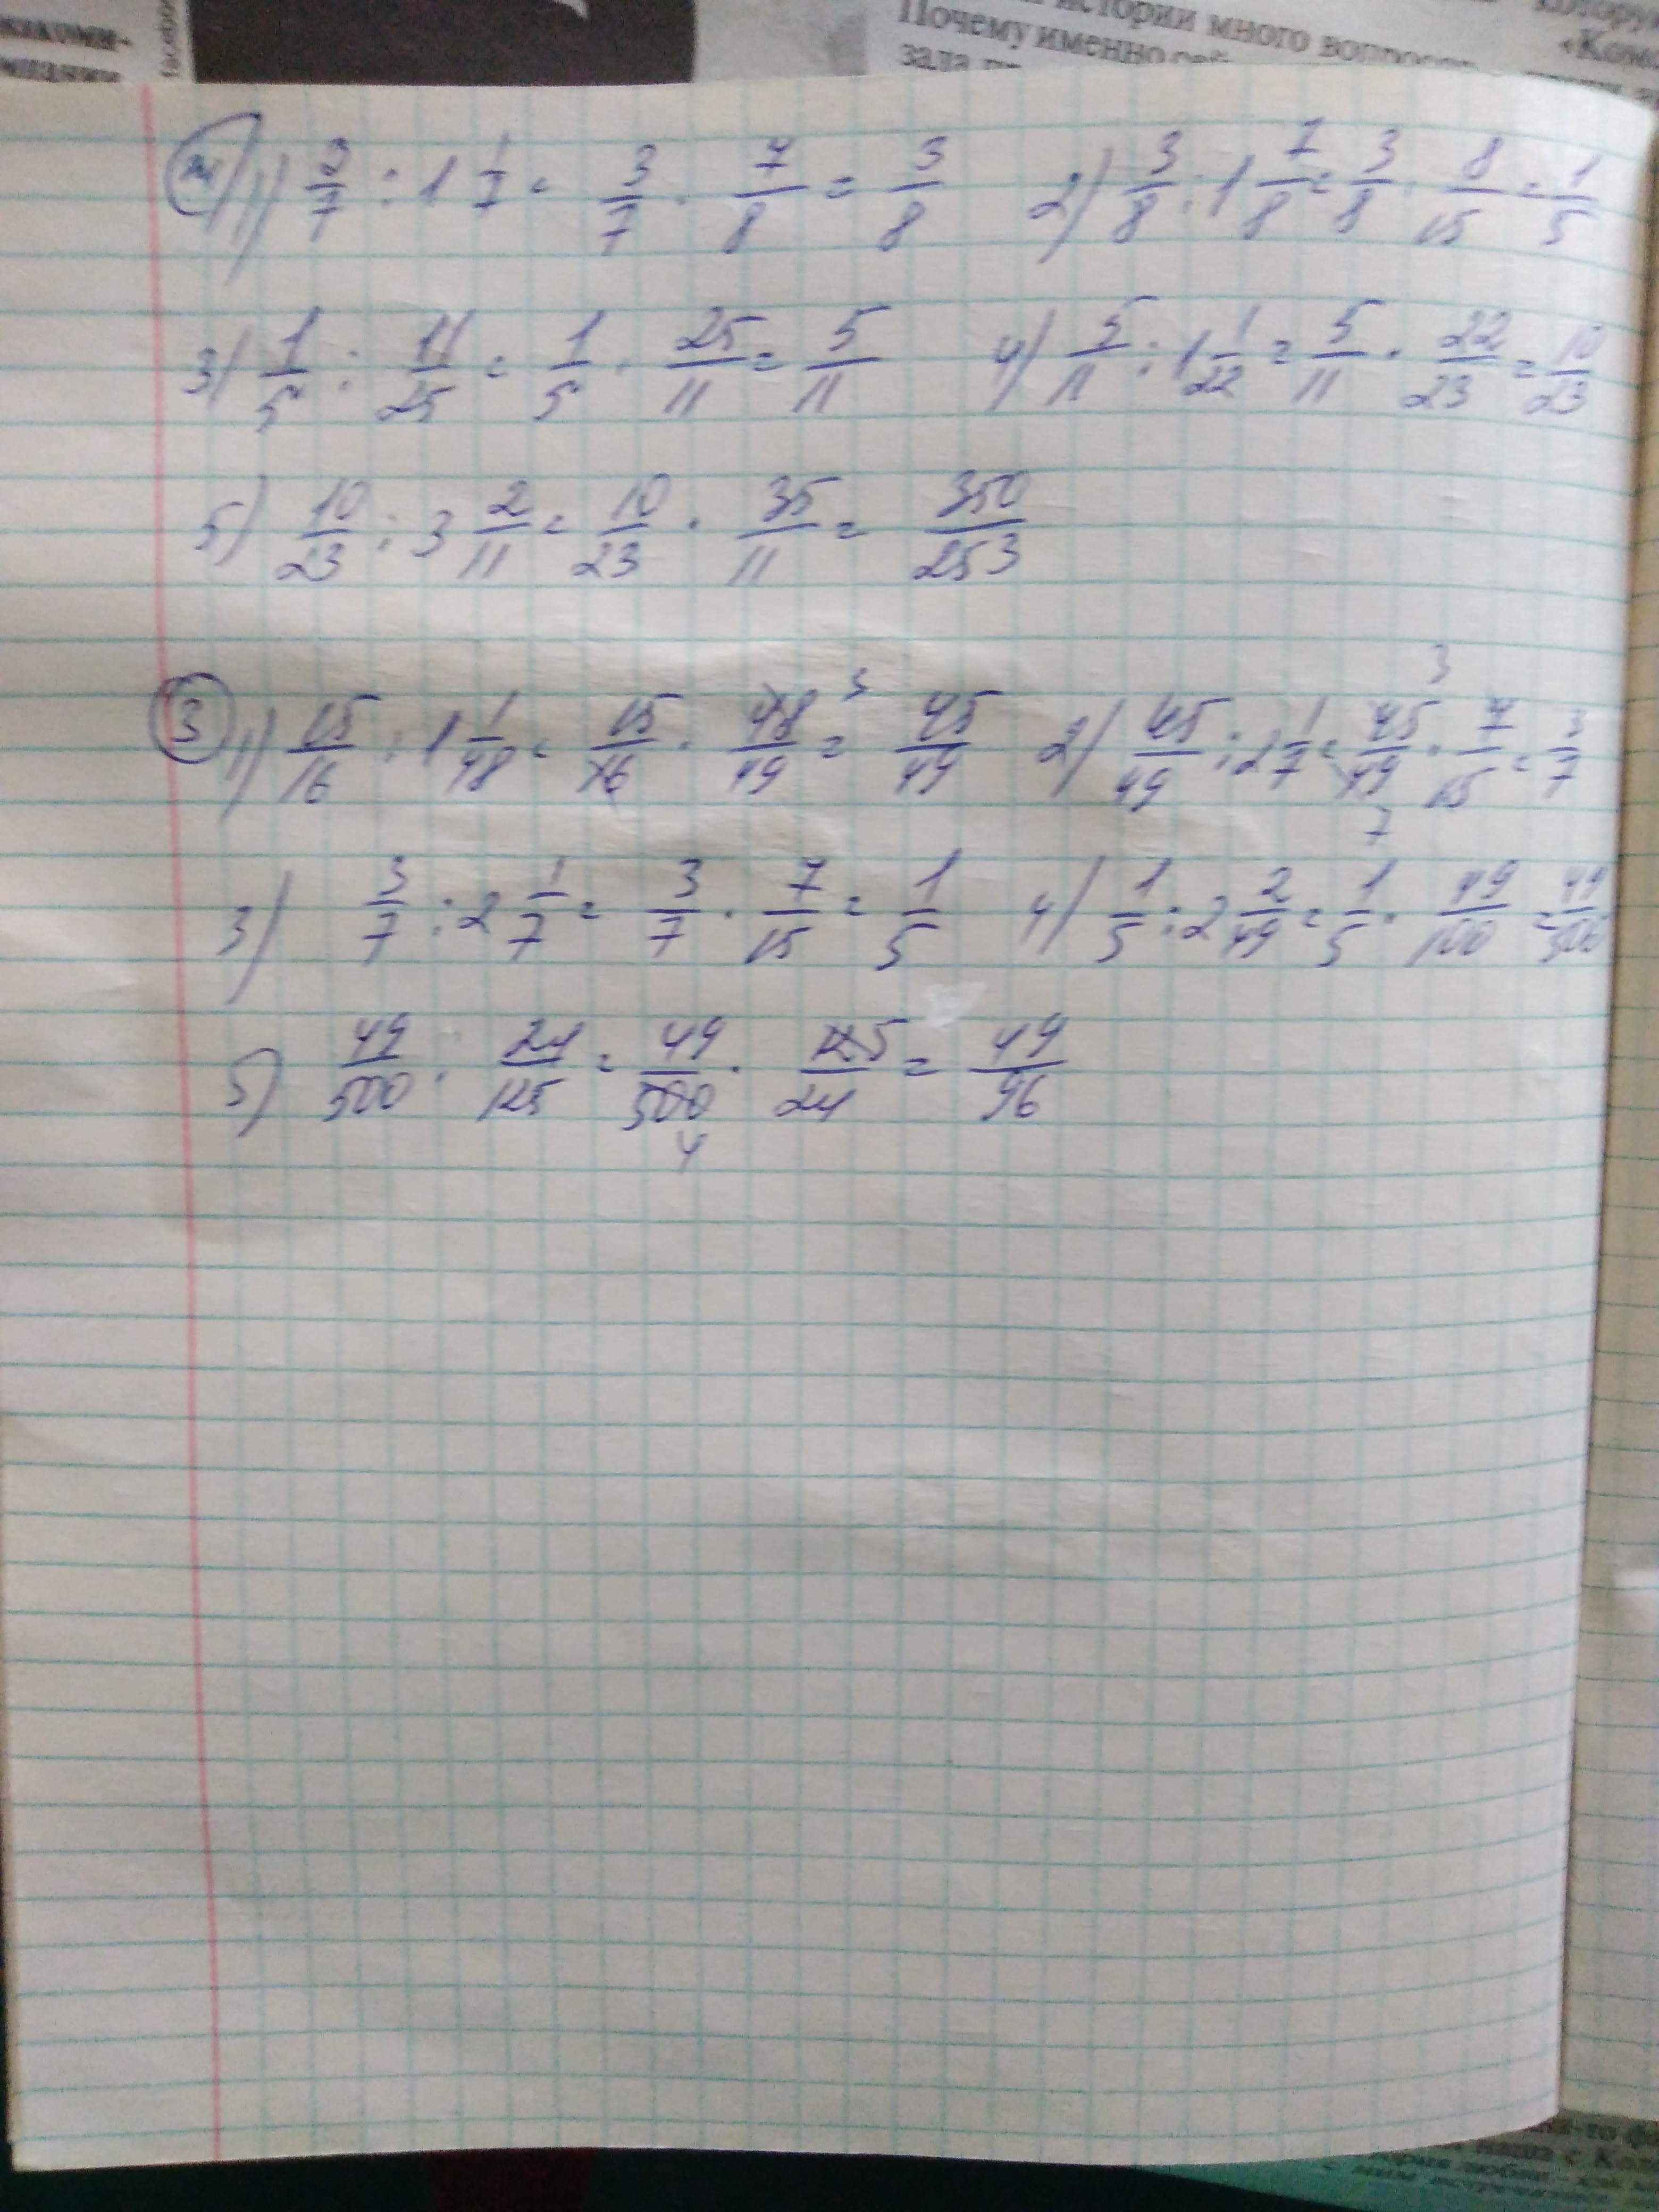 истории много вопросов
Почему именно
зала
«Ком
ж) 1) 3/7 : 1 1/7 = 3/7 · 7/8 = 3/8 2) 3/8 : 1 7/8 = 3/8 · 8/15 = 1/5
3) 1/5 : 11/25 = 1/5 · 25/11 = 5/11 4) 5/11 : 1 1/22 = 5/11 · 22/23 = 10/23
5) 10/23 : 3 2/11 = 10/23 · 35/11 = 350/253
3 1) 15/16 : 1 1/48 = 15/16 · 48/49 3 = 45/49 2) 45/49 : 2 1/7 = 45/49 3 7 · 7/15 = 3/7
3) 3/7 : 2 1/7 = 3/7 · 7/15 = 1/5 4) 1/5 : 2 2/49 = 1/5 · 49/100 = 49/500
5) 49/500 : 24/125 = 49/500 4 · 125/24 = 49/96